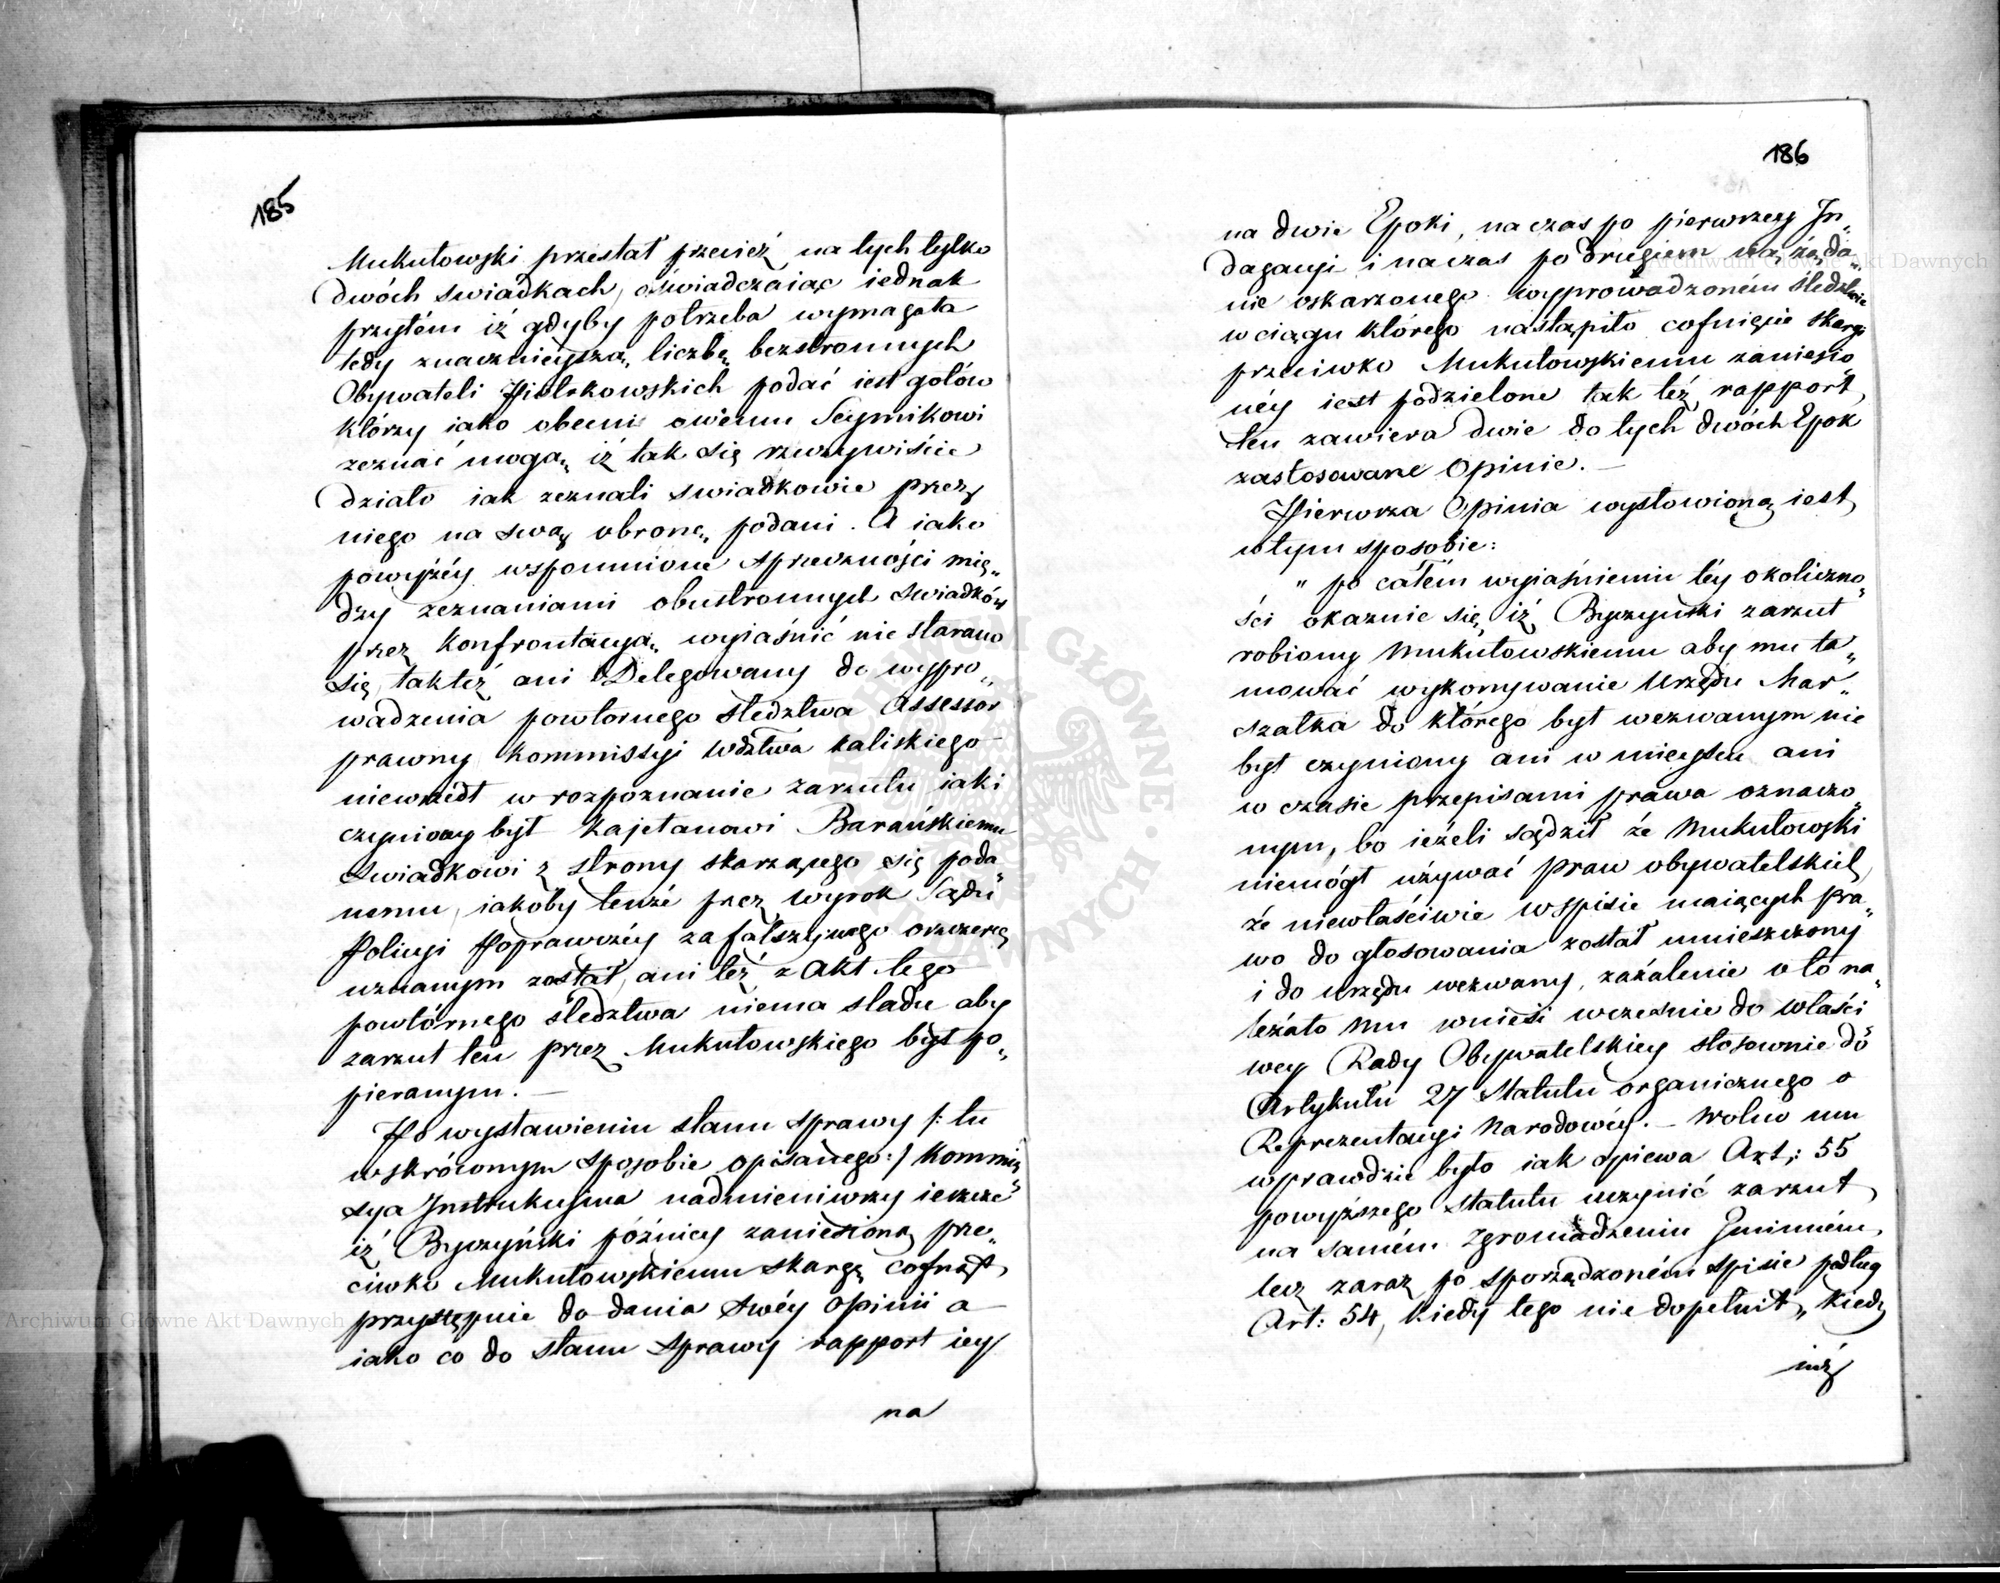 185
Mukułowski przestał przecież na tych tylko
dwóch swiadkach, oświadczaiąc iednak
przytém iż gdyby potrzeba wymagała
tedy znacznieyszą liczbę bezstronnych
Obywateli Piotrkowskich podać iest gotów
którzy iako obecni owému Seymikowi
zeznać mogą iż tak się rzeczywiście
działo iak zeznali swiadkowie przez
niego na swą obronę podani. A iako
powyżéy wspomnione sprzeczności mię„
dzy zeznaniami obustronnych swiadków
przez konfrontacyą wyiaśnić nie starano
się, takteż ani Delegowany do wypro„
wadzenia powtornego sledztwa Assessor
prawny kommissyi Wdztwa kaliskiego
niewszedł w rozpoznanie zarzutu iaki
czyniony był kajetanowi Barańskiemu
swiadkowi z strony skarzącego się poda„
nemu, iakoby tenże przez wyrok Sądu
Policyi Poprawczéy za fałszywego
uznanym został, ani też z Akt tego
powtórnego śledztwa niema sladu aby
zarzut ten przez Mukułowskiego był po„
pieranym. —
Po wystawieniu stanu sprawy /: tu
w skróconym sposobie opisanego :/ Kommis„
sya Instrukcyjna nadmieniwszy ieszcze
iż Byczyński późniey zaniesioną prze„
ciwko Mukułowskiemu skargę cofnął,
przystępuie do dania swéy opinii a
iako co do stanu sprawy rapport iey
na
186
na dwie Epoki, na czas po pierwszey In„
dagacyi i na czas po drugiem na żąda„
nie oskarzonego wyprowadzoném śledztwie
w ciągu którego nastąpiło cofnięcie skargi
przeciwko Mukułowskiemu zaniesio„
néy iest podzielone tak też rapport
ten zawiera dwie do tych dwóch Epok
zastosowane Opinie. —
Pierwsza Opinia wysłowioną iest
w tym sposobie:
„ po całém wyiaśnieniu téy okoliczno„
ści okazuie się, iż Byczyński zarzut
robiony Mukułowskiemu aby mu ta„
mować wykonywanie Urzędu Mar„
szałka do którego był wezwanym nie
był czyniony ani w mieyscu ani
w czasie przepisami prawa oznaczo„
nym, bo ieżeli sądził że Mukułowski
niemógł używać praw obywatelskich,
że niewłaściwie w spisie maiących pra„
wo do głosowania został umieszczony
i do urzędu wezwany, zażalenie o to na„
leżało mu wnieść wcześnie do właści„
wey Rady Obywatelskiey stosownie do
Artykułu 27 Statutu organicznego o
Reprezentacyi Narodowéy. — Wolno mu
wprawdzie było iak opiewa Art: 55
powyższego Statutu uczynić zarzut
na samém Zgromadzeniu Gminném,
lecz zaraz po sporządzoném spisie podług
Art: 54, kiedy tego nie dopełnił, kiedy
iuż
Archiwum Główne Akt Dawnych
Archiwum Główne Akt Dawnych
ARCHIWUM GŁÓWNE AKT DAWNYCH